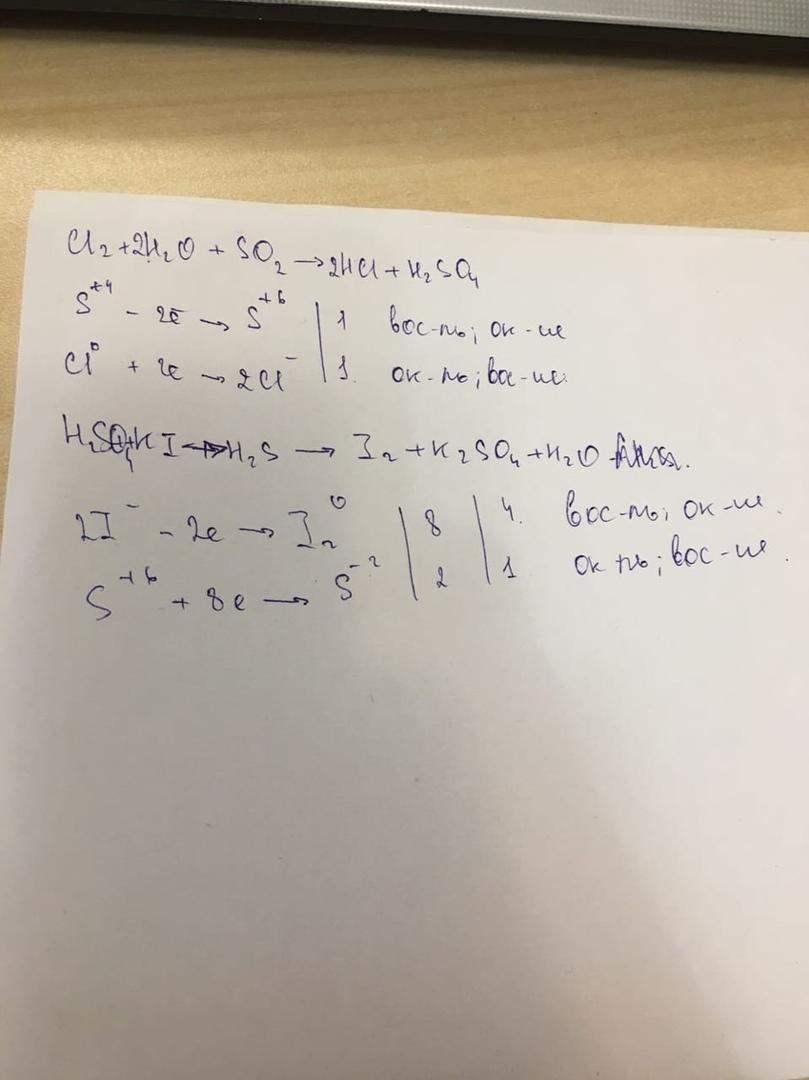 Cl₂ + 2H₂O + SO₂ → 2HCl + H₂SO₄
S⁺⁴ - 2e → S⁺⁶ | 1 вос-ль; ок-ие
Cl⁰ + 2e → 2Cl⁻ | 1. ок-ль; вос-ие.
H₂SO₄ + KI H₂S → I₂ + K₂SO₄ + H₂O
2I⁻ - 2e → I₂⁰ | 8 | 4. вос-ль; ок-ие.
S⁺⁶ + 8e → S⁻² | 2 | 1 ок-ль; вос-ие.